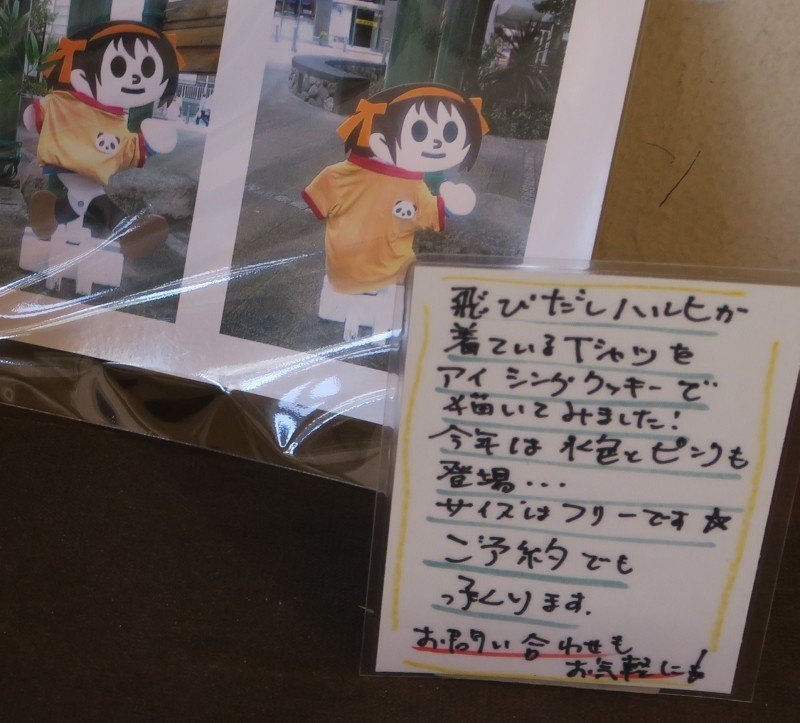 飛びだしハルヒが
着ているTシャツを
アイシングクッキーで
描いてみました!
今年は水色とピンクも
登場...
サイズはフリーです☆
ご予約でも
承ります.
お問い合わせも
お気軽に!